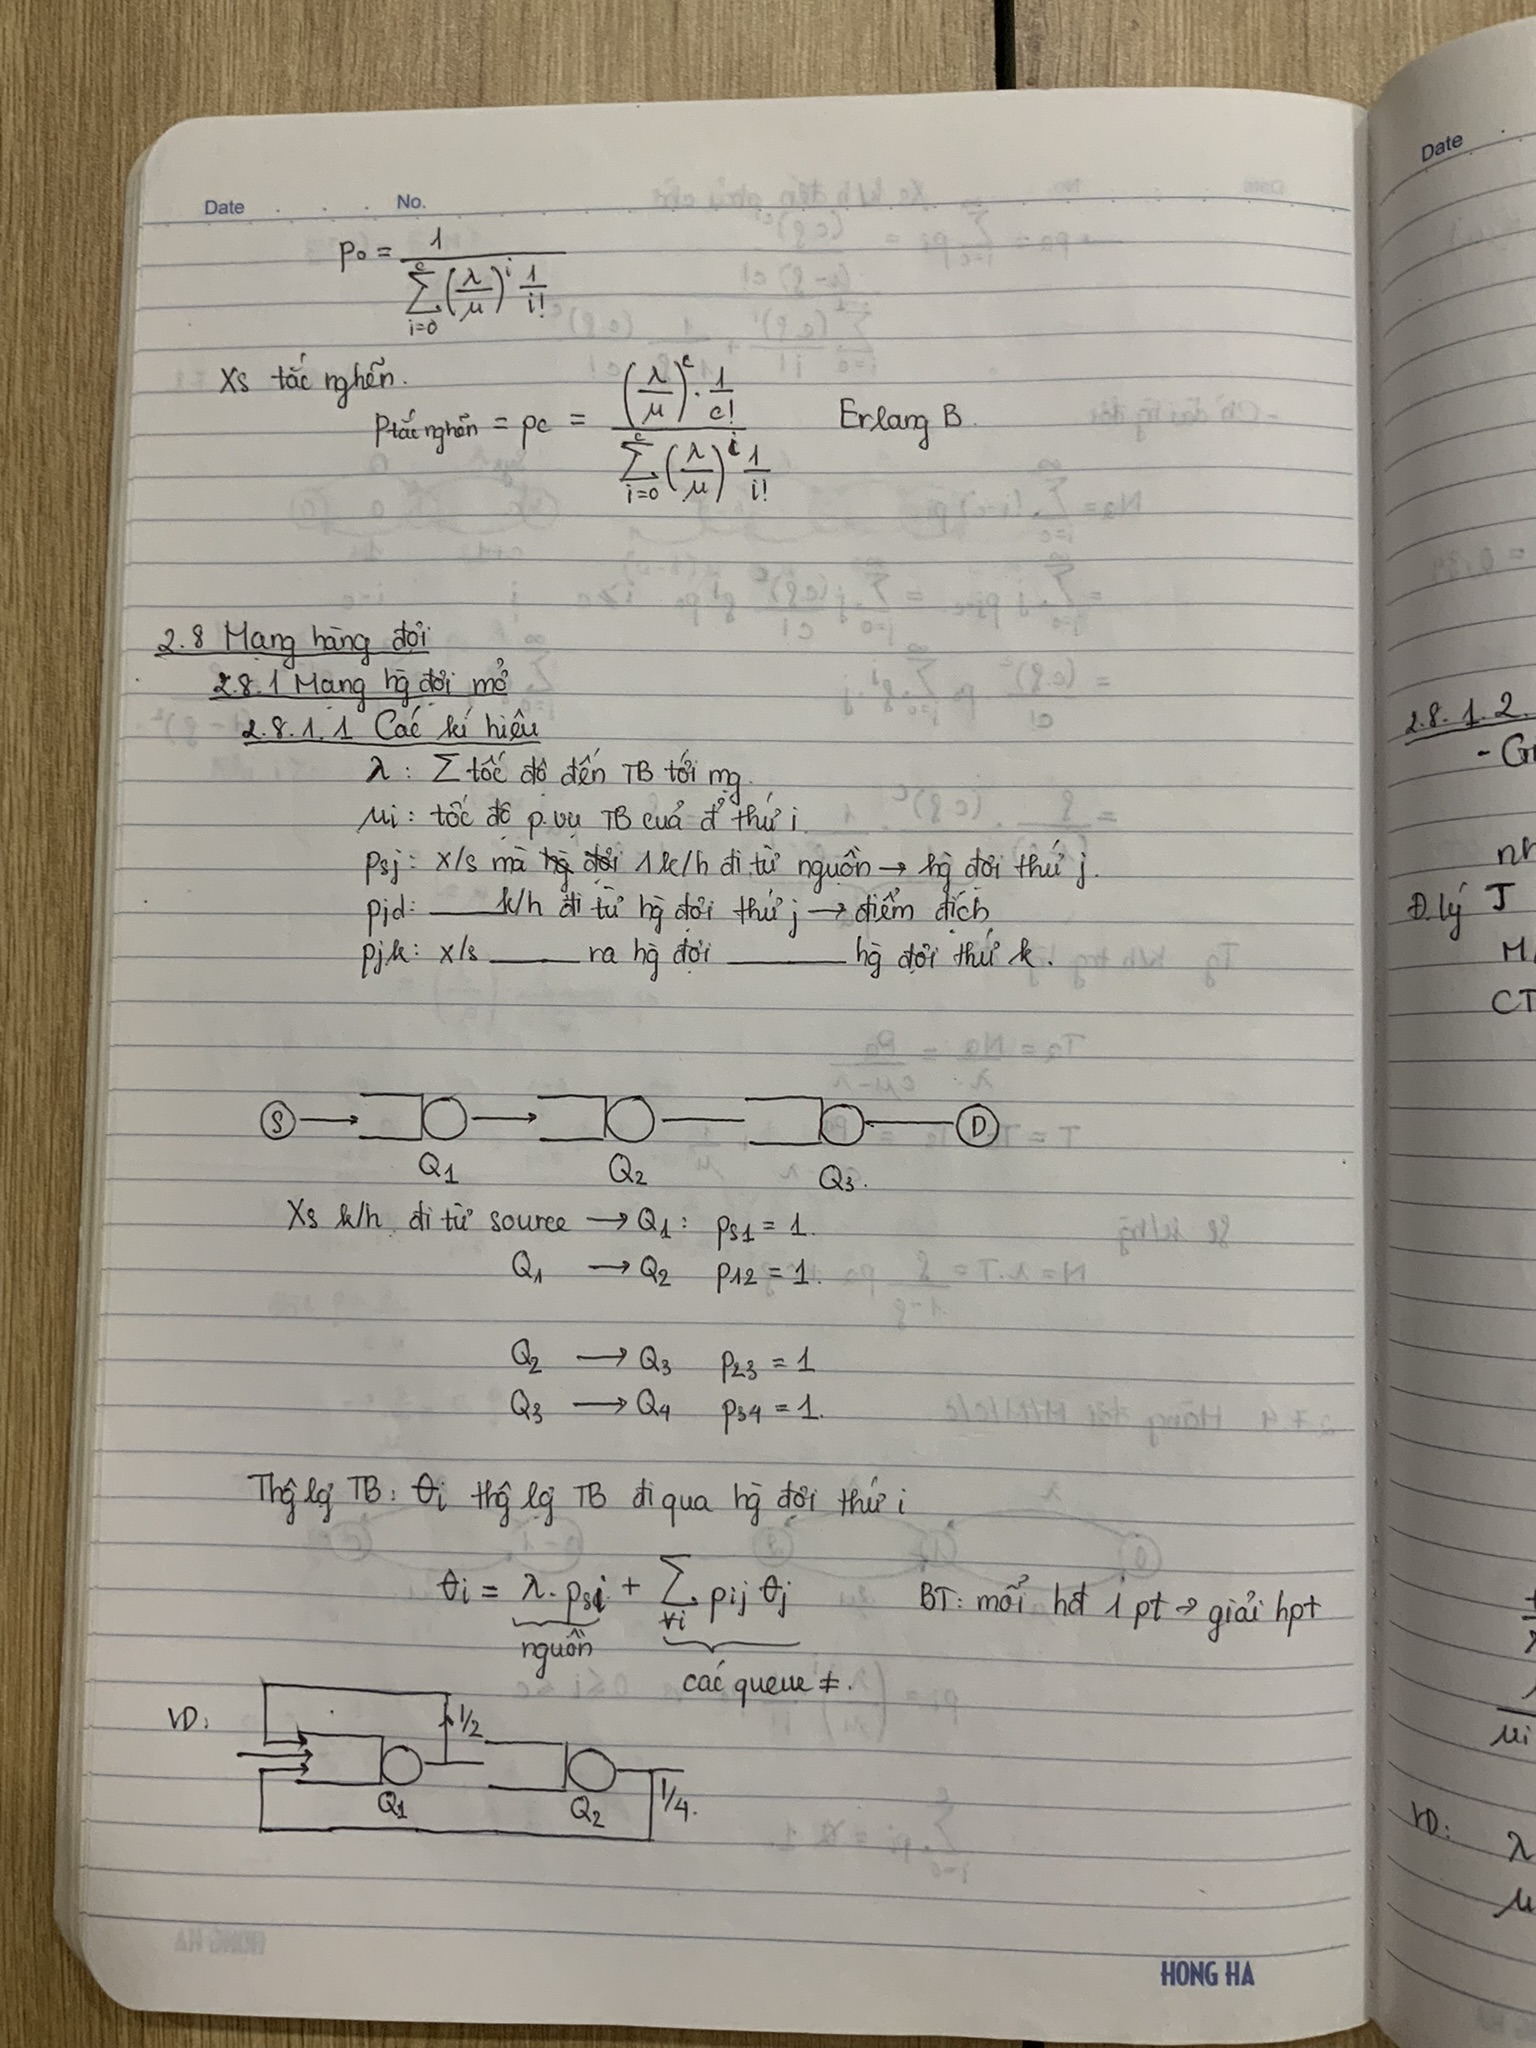 Date . . . No.
p0 = 1 / ∑_{i=0}^{c} (λ/μ)^i 1/i!
Xs tắc nghẽn.
Ptắc nghẽn = pc = (λ/μ)^c . 1/c! / ∑_{i=0}^{c} (λ/μ)^i 1/i! Erlang B.
2.8 Mạng hàng đợi
2.8.1 Mạng hg̀ đợi mở
2.8.1.1 Các kí hiệu
λ: ∑ tốc độ đến TB tới mg.
μi: tốc độ p.vụ TB của đ' thứ i
psj: x/s mà 1 k/h đi từ nguồn → hg̀ đợi thứ j.
pjd: ___ k/h đi từ hg̀ đợi thứ j → điểm đích
pjk: x/s ___ ra hg̀ đợi ___ hg̀ đợi thứ k.
S D
Q1 Q2 Q3.
Xs k/h đi từ source → Q1: ps1 = 1.
Q1 → Q2 p12 = 1.
Q2 → Q3 p23 = 1
Q3 → Q4 p34 = 1.
Thg̀ lg̣ TB: θi thg̀ lg̣ TB đi qua hg̀ đợi thứ i
θi = λ. psi + ∑_{∀i} pij θj BT: mỗi hđ 1 pt → giải hpt
nguồn các queue ≠.
VD: 1/2
Q1 Q2 1/4.
HONG HA
Date
2.8.1.2.
Đ.lý J
CT
μi
VD: λ
μ